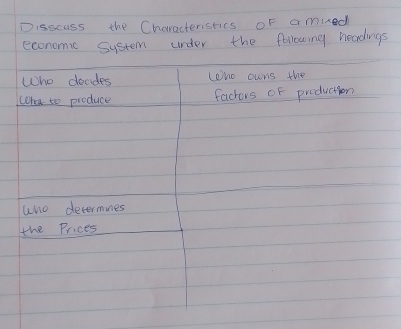 Disscuss the Characteristics OF a mixed
economic System under the following headings
Who decides
What to produce
Who owns the
factors OF production
Who determines
the Prices